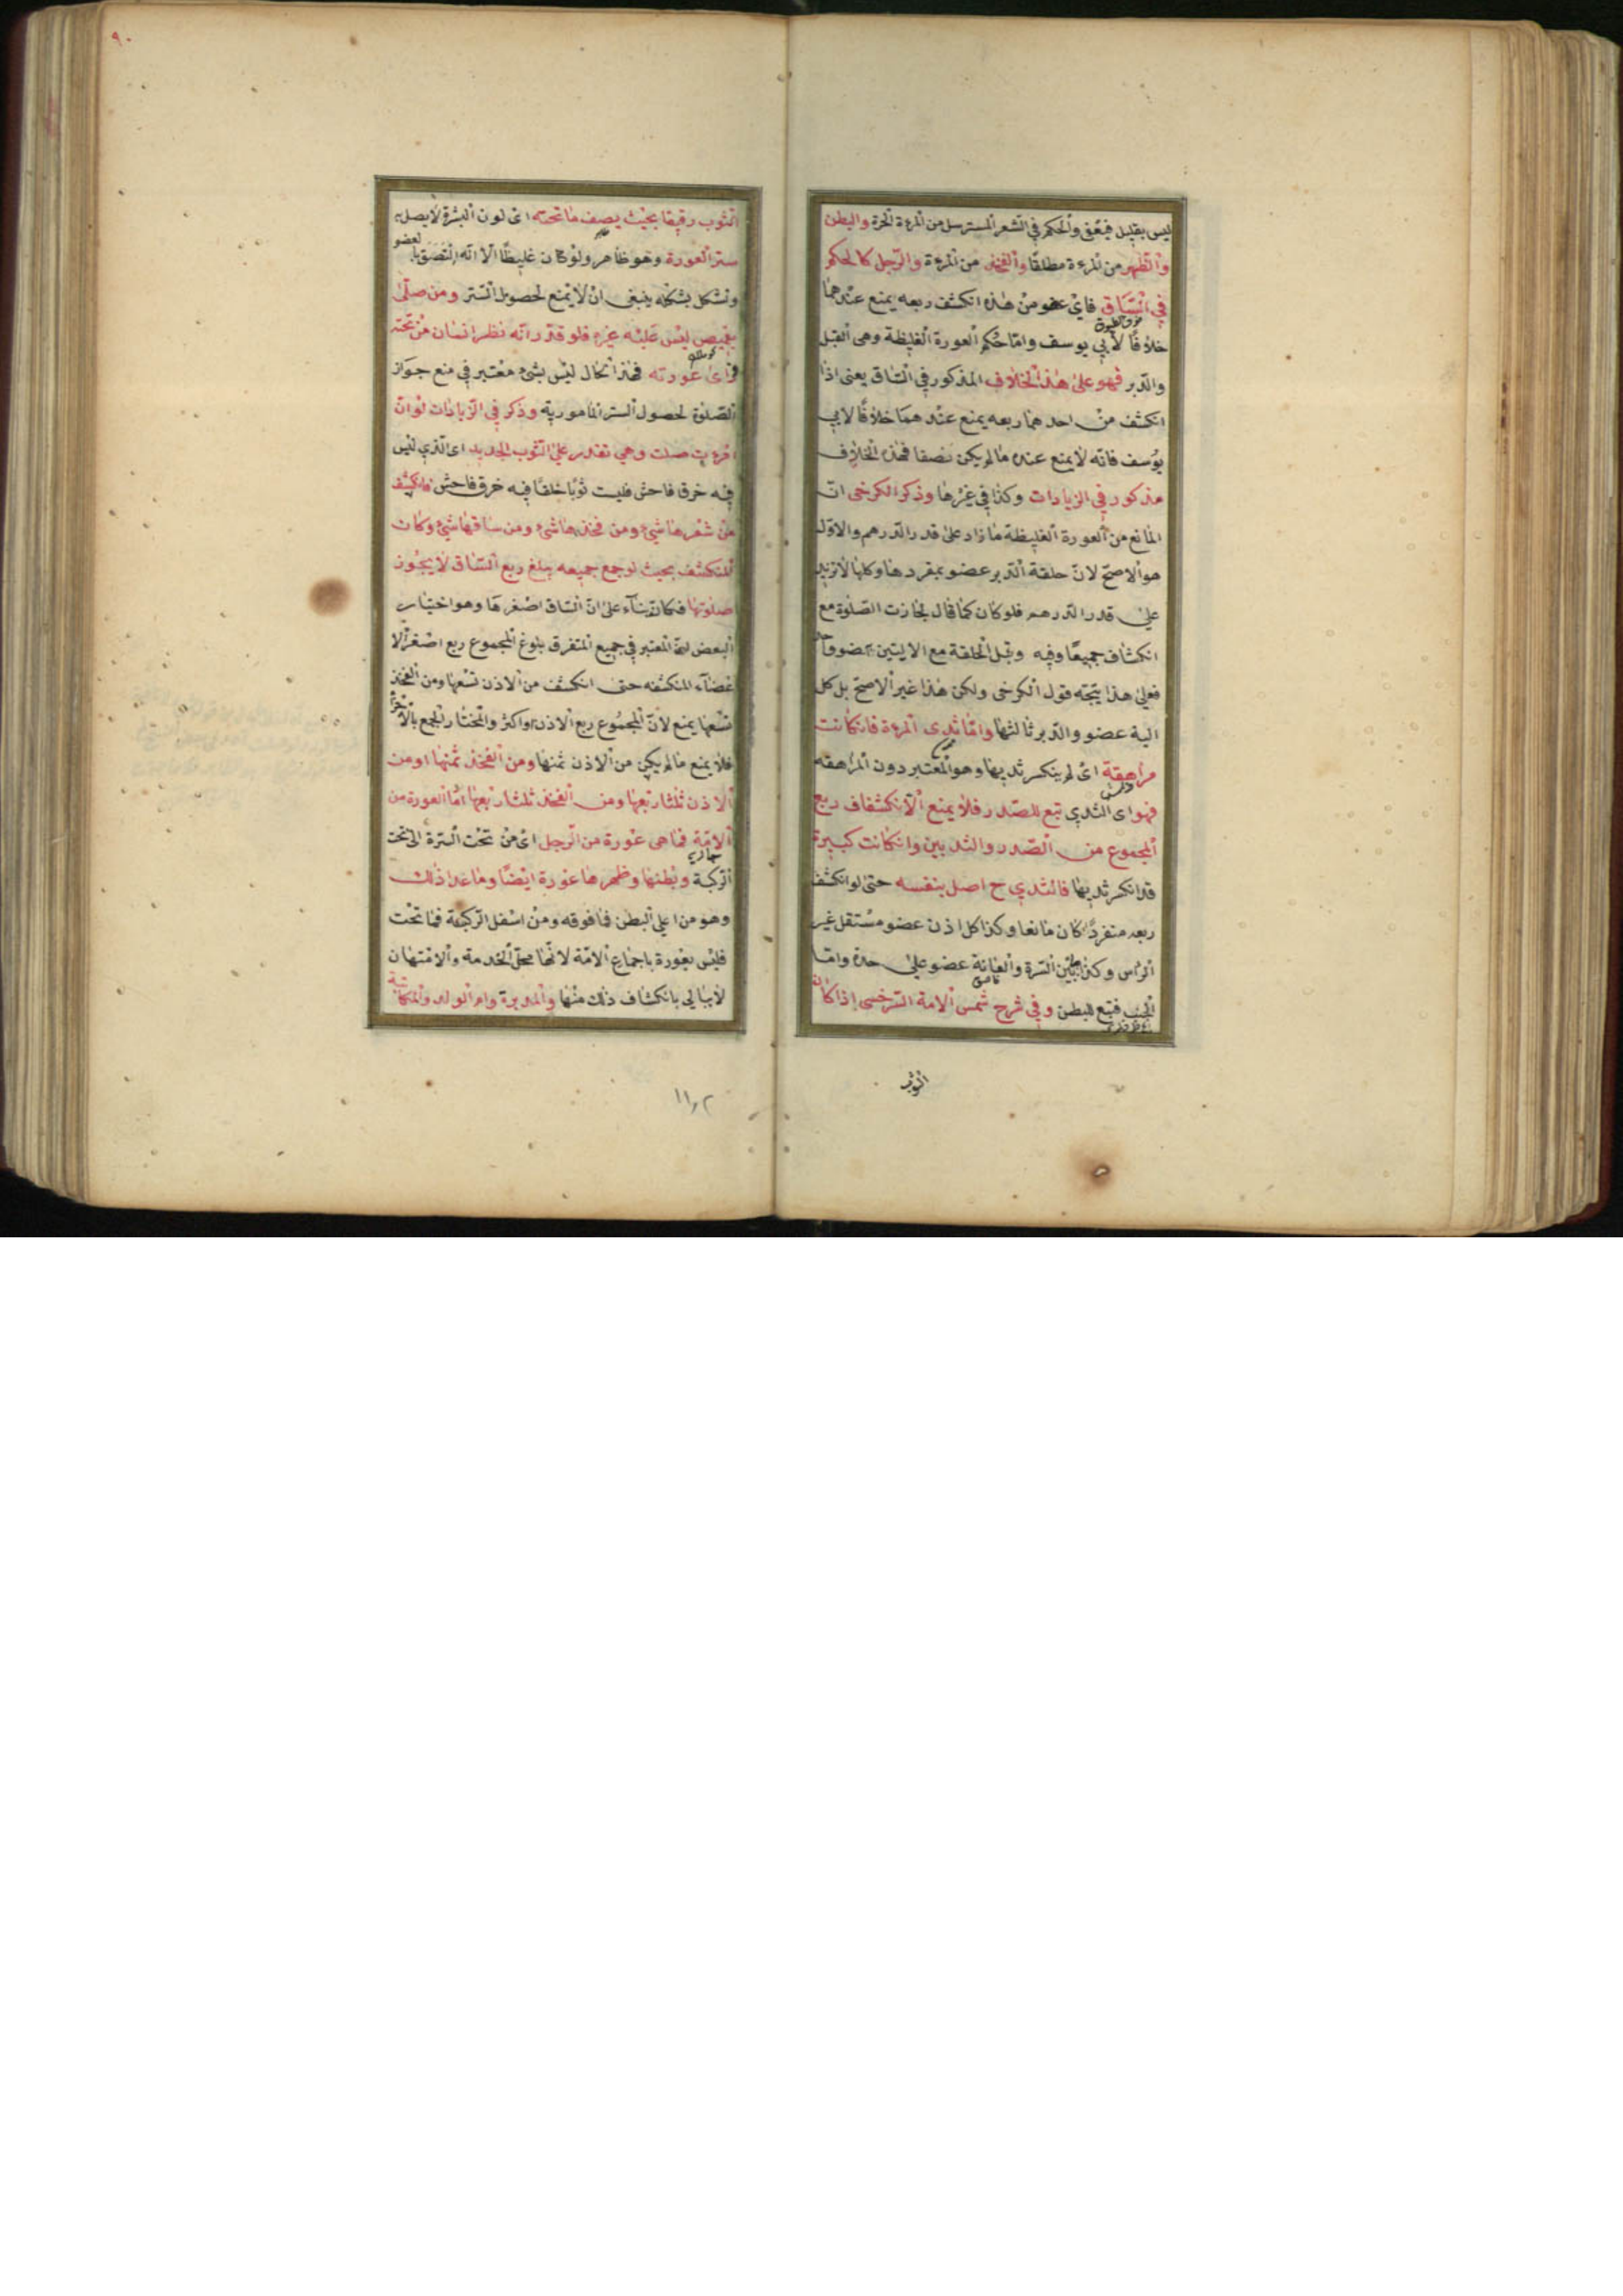 ليس بقليل فيعفى والحكم في الشعر المسترسل من المرءة الحرة والبطن
والظهر من المرءة مطلقا والفخذ من المرءة والرجل كالحكم
في الساق فاى عضو من هذه انكشف ربعه يمنع عندهما
خلافا لابي يوسف واما حكم العورة الغليظة وهى القبل
والدبر فهو على هذا الخلاف المذكور في الساق يعنى اذا
انكشف من احدهما ربعه يمنع عندهما خلافا لابي
يوسف فانه لا يمنع عنده ما لم يكن نصفا فهذه الخلاف
مذكور في الزيادات وكذا في غيرها وذكر الكرخى ان
المانع من العورة الغليظة ما زاد على قدر الدرهم والاول
هو الاصح لان حلقة الدبر عضو بمفردها وكلها لا تزيد
على قدر الدرهم فلو كان كما قال لجازت الصلوة مع
انكشاف جميعا وفيه وقبل الحلقة مع الاليتين عضو واحد
فعلى هذا يتجه قول الكرخى ولكن هذا غير الاصح بل كل
الية عضو والدبر ثالثها واما ثدى المرءة فان كانت
مراهقة اى لم ينكسر ثديها وهو المعتبر دون المراهقه
فهو اى الثدي تبع للصدر فلا يمنع الا انكشاف ربع
المجموع من الصدر والثديين وان كانت كبيرة
قد انكسر ثديها فالثدي ح اصل بنفسه حتى لو انكشف
ربعه منفردا كان مانعا وكذا كل اذن عضو مستقل غير
الرأس وكذا ما بين السرة والعانة عضو على حدة واما
الجنب فتبع للبطن وفي شرح شمس الامة السرخسى إذا كان
الثوب
٩٠
الثوب رقيقا بحيث يصف ما تحته اى لون البشرة لا يصل به
ستر العورة وهو ظاهر ولو كان غليظا الا انه التصق بالعضو
وتشكل بشكله ينبغى ان لا يمنع لحصول الستر ومن صلى
بقميص ليس عليه غيره فلو قدر انه نظر انسان من تحته
فرأى عورته فهذا الحال ليس بشئ معتبر في منع جواز
الصلوة لحصول الستر المأمور به وذكر في الزيادات لو ان
امرءة صلت وهي تقدر على الثوب الجديد اى الذي ليس
فيه خرق فاحش فلبست ثوبا خلقا فيه خرق فاحش فانكشف
من شعرها شئ ومن فخذها شئ ومن ساقها شئ وكان
المنكشف بحيث لو جمع جميعه يبلغ ربع الساق لا يجوز
صلوتها فكان بناء على ان الساق اصغرها وهو اختيار
البعض ان المعتبر في جميع المتفرق بلوغ المجموع ربع اصغر الا
عضاء المنكشفه حتى انكشف من الاذن تسعها ومن الفخذ
تسعها يمنع لان المجموع ربع الاذن او اكثر والمختار الجمع بالاجزاء
فلا يمنع ما لم يكن من الاذن ثمنها ومن الفخذ ثمنها او من
الاذن ثلثا ربعها ومن الفخذ ثلثا ربعها اما العورة من
الامة فما هى عورة من الرجل اى من تحت السرة الى تحت
الركبة وبطنها وظهرها عورة ايضا وما عدا ذلك
وهو من اعلى البطن فما فوقه ومن اسفل الركبة فما تحت
فليس بعورة باجماع الامة لانها محل الخدمة والامتهان
لا يبالي بانكشاف ذلك منها والمدبرة وام الولد والمكاتبة
١١٠٢